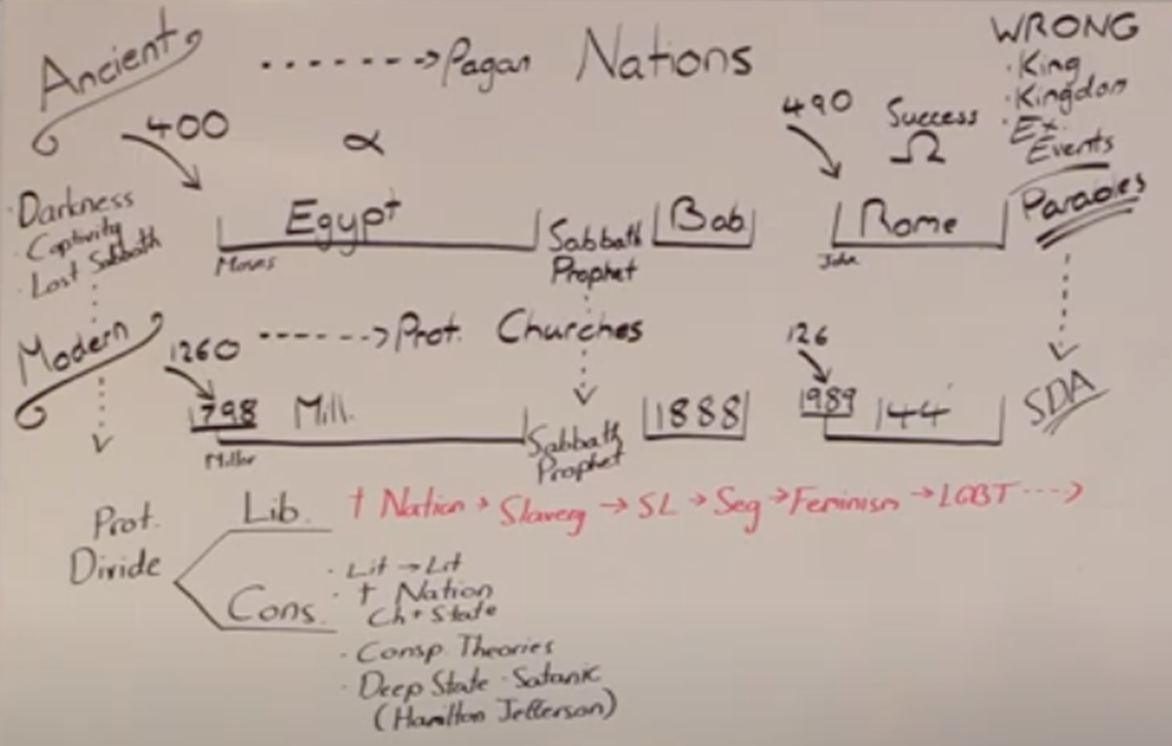 Ancient
Pagan Nations
WRONG
· King
· Kingdom
· Ex.
Events
400
α
490
Success
Ω
· Darkness
· Captivity
· Lost Sabbath
Egypt
Moses
Sabbath
Prophet
Bab
Rome
John
Parables
Modern
1260
Prot. Churches
126
1798
Mill.
Miller
Sabbath
Prophet
1888
1989
144
SDA
Prot.
Divide
Lib.
† Nation → Slavery → SL → Seg → Feminism → LGBT
Cons.
· Lit → Lit
· † Nation
Ch + State
· Consp. Theories
· Deep State · Satanic
(Hamilton Jefferson)